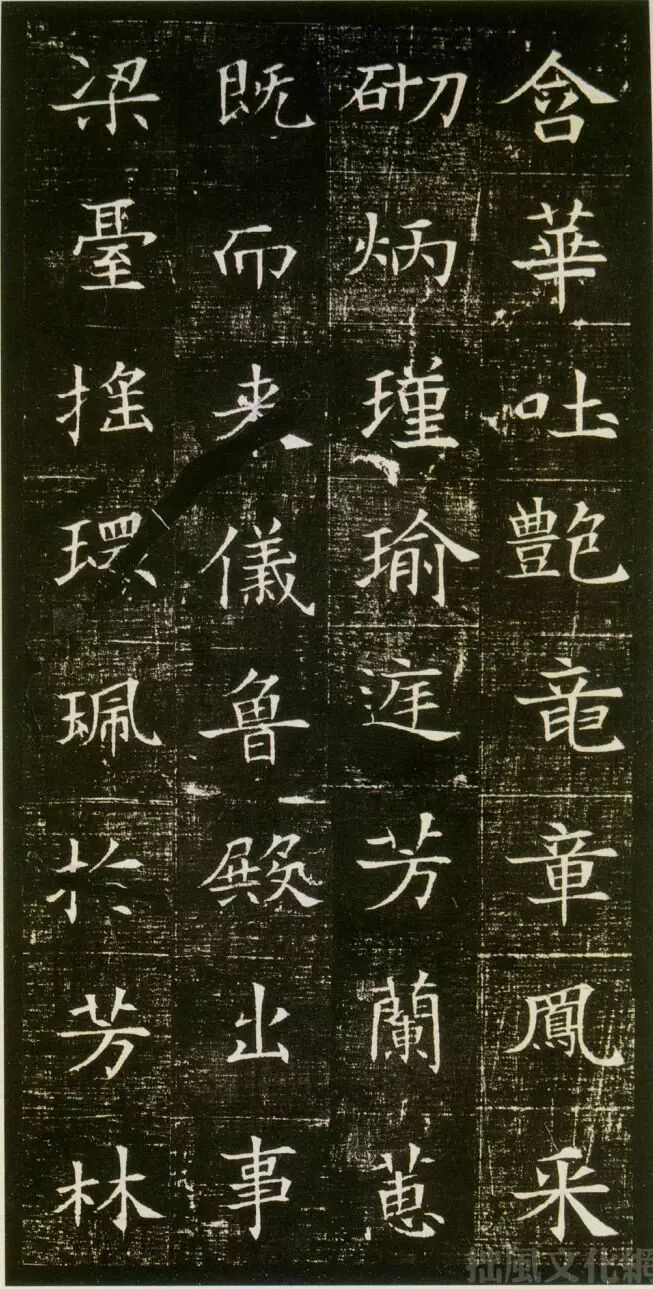 含華吐艶竜章鳳采
砌炳瑾瑜逰芳蘭蕙
既而来儀魯殿出事
梁臺揺環珮於芳林
拙風文化網